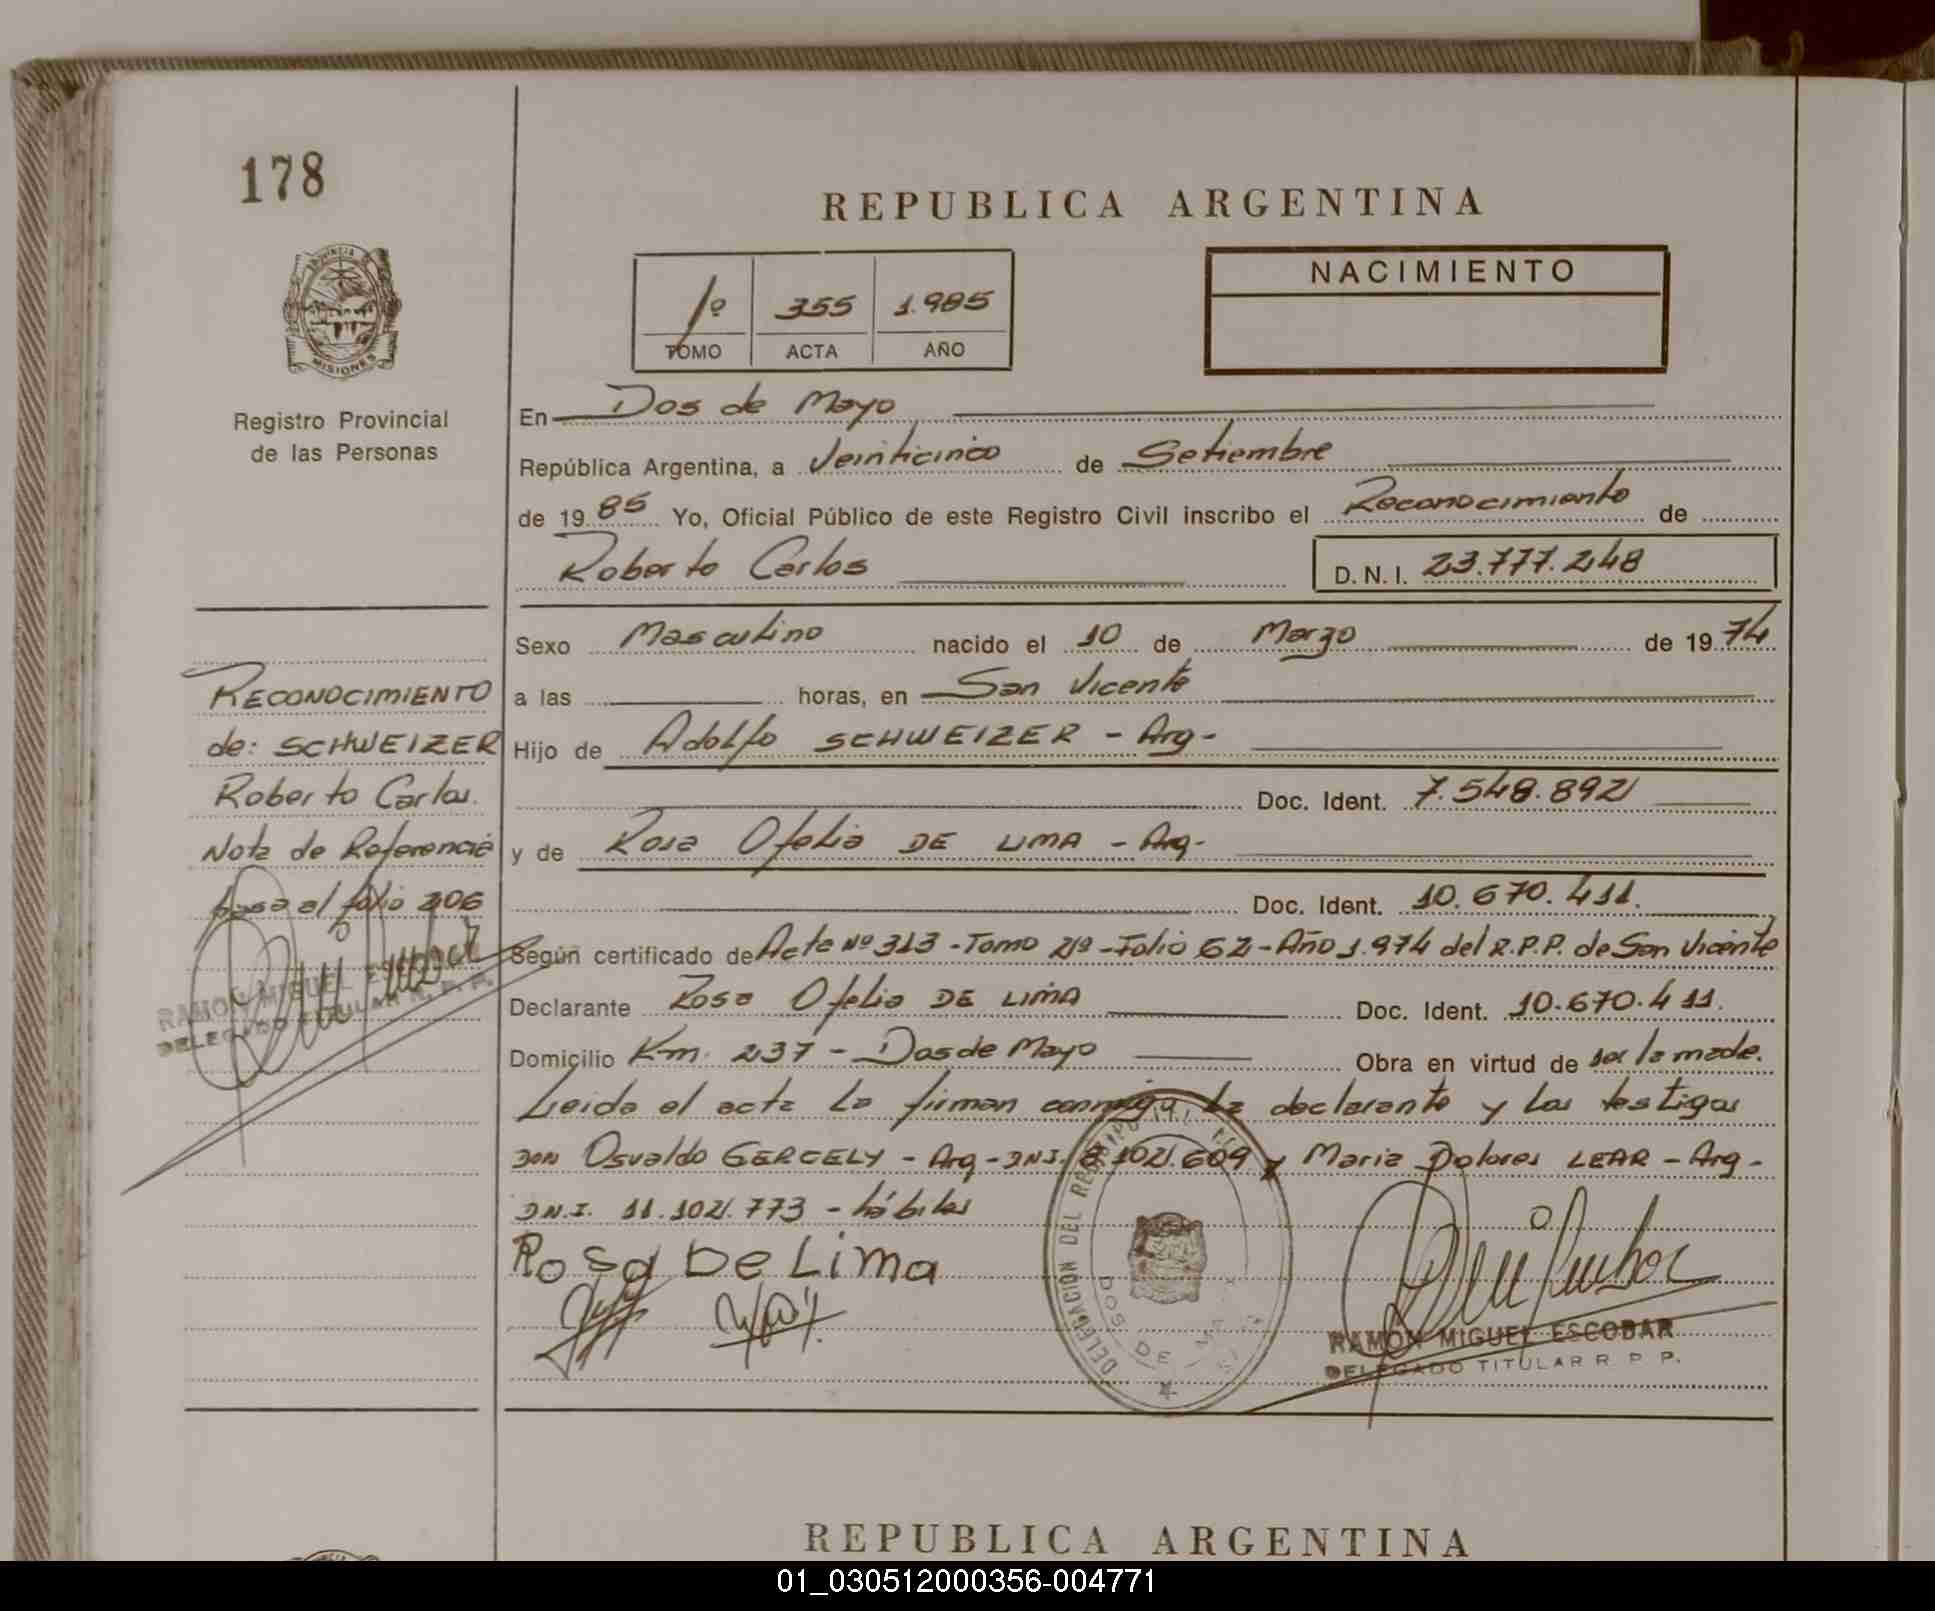 178
REPUBLICA ARGENTINA
PROVINCIA DE
MISIONES
Registro Provincial
de las Personas
1º 355 1.985
TOMO ACTA AÑO
NACIMIENTO
En Dos de Mayo
República Argentina, a Veinticinco de Setiembre
de 1985 Yo, Oficial Público de este Registro Civil inscribo el Reconocimiento de
Roberto Carlos D.N.I. 23.777.248
Sexo Masculino nacido el 10 de Marzo de 1974
a las horas, en San Vicente
Hijo de Adolfo SCHWEIZER - Arg-
Doc. Ident. 7.548.892
y de Rosa Ofelia DE LIMA - Arg-
Doc. Ident. 10.670.411.
Según certificado de Acta Nº 313 - Tomo 2º - Folio 62 - Año 1.974 del R.P.P. de San Vicente
Declarante Rosa Ofelia DE LIMA Doc. Ident. 10.670.411.
Domicilio Km. 237 - Dos de Mayo Obra en virtud de ser la madre.
Leida el acta la firman conmigo la declarante y los testigos
don Osvaldo GERGELY - Arg - DNI. 8.102.609 y Maria Dolores LEAR - Arg -
D.N.I. 11.102.773 - hábiles
Rosa De Lima
RAMÓN MIGUEL ESCOBAR
DELEGADO TITULAR R. P. P.
DELEGACIÓN DEL REGISTRO
DOS DE
RECONOCIMIENTO
de: SCHWEIZER
Roberto Carlos.
Nota de Referencia
pasa al folio 206
RAMÓN MIGUEL ESCOBAR
DELEGADO TITULAR R. P. P.
REPUBLICA ARGENTINA
01_030512000356-004771